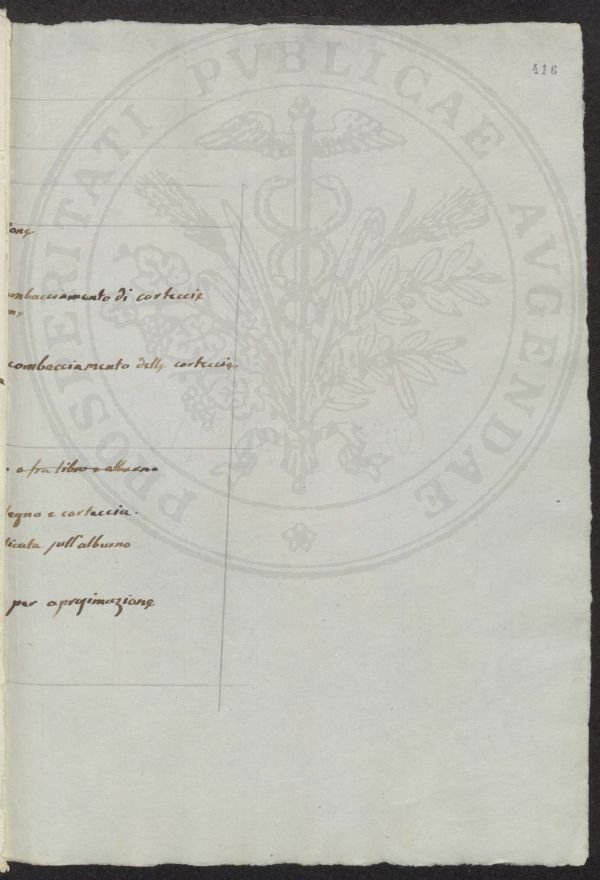 416
PROSPERITATI PUBLICAE AUGENDAE
ione
mbacciamento di corteccie
combacciamento delle corteccie
o fra libro e alburno
legno e corteccia.
licata sull'alburno
per aprosimazione